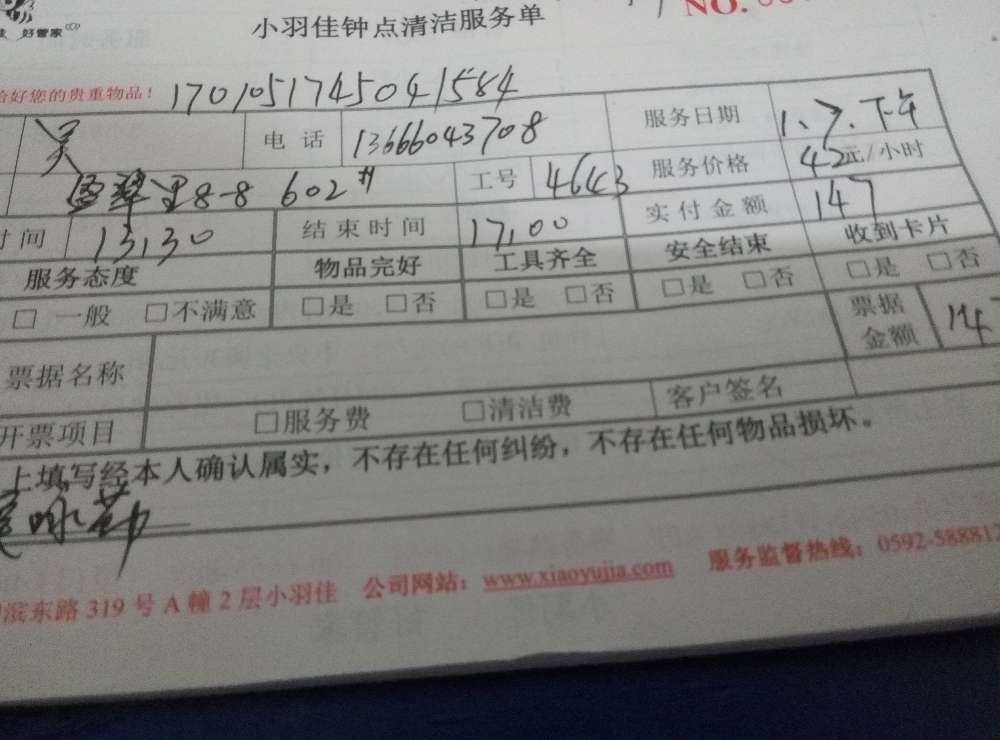 小羽佳钟点清洁服务单
NO.
好管家
您的贵重物品！ 1701051745041584
吴 电话 13666043708 服务日期 1、7、下午
8-8 602# 工号 4643 服务价格 42元/小时
时间 13,30 结束时间 17,00 实付金额 147
服务态度 物品完好 工具齐全 安全结束 收到卡片
□ 一般 □不满意 □是 □否 □是 □否 □是 □否 □是 □否
票据名称 票据金额 14
开票项目 □服务费 □清洁费 客户签名
上填写经本人确认属实，不存在任何纠纷，不存在任何物品损坏。
滨东路 319 号 A 幢 2 层小羽佳 公司网站：www.xiaoyujia.com 服务监督热线：0592-588812